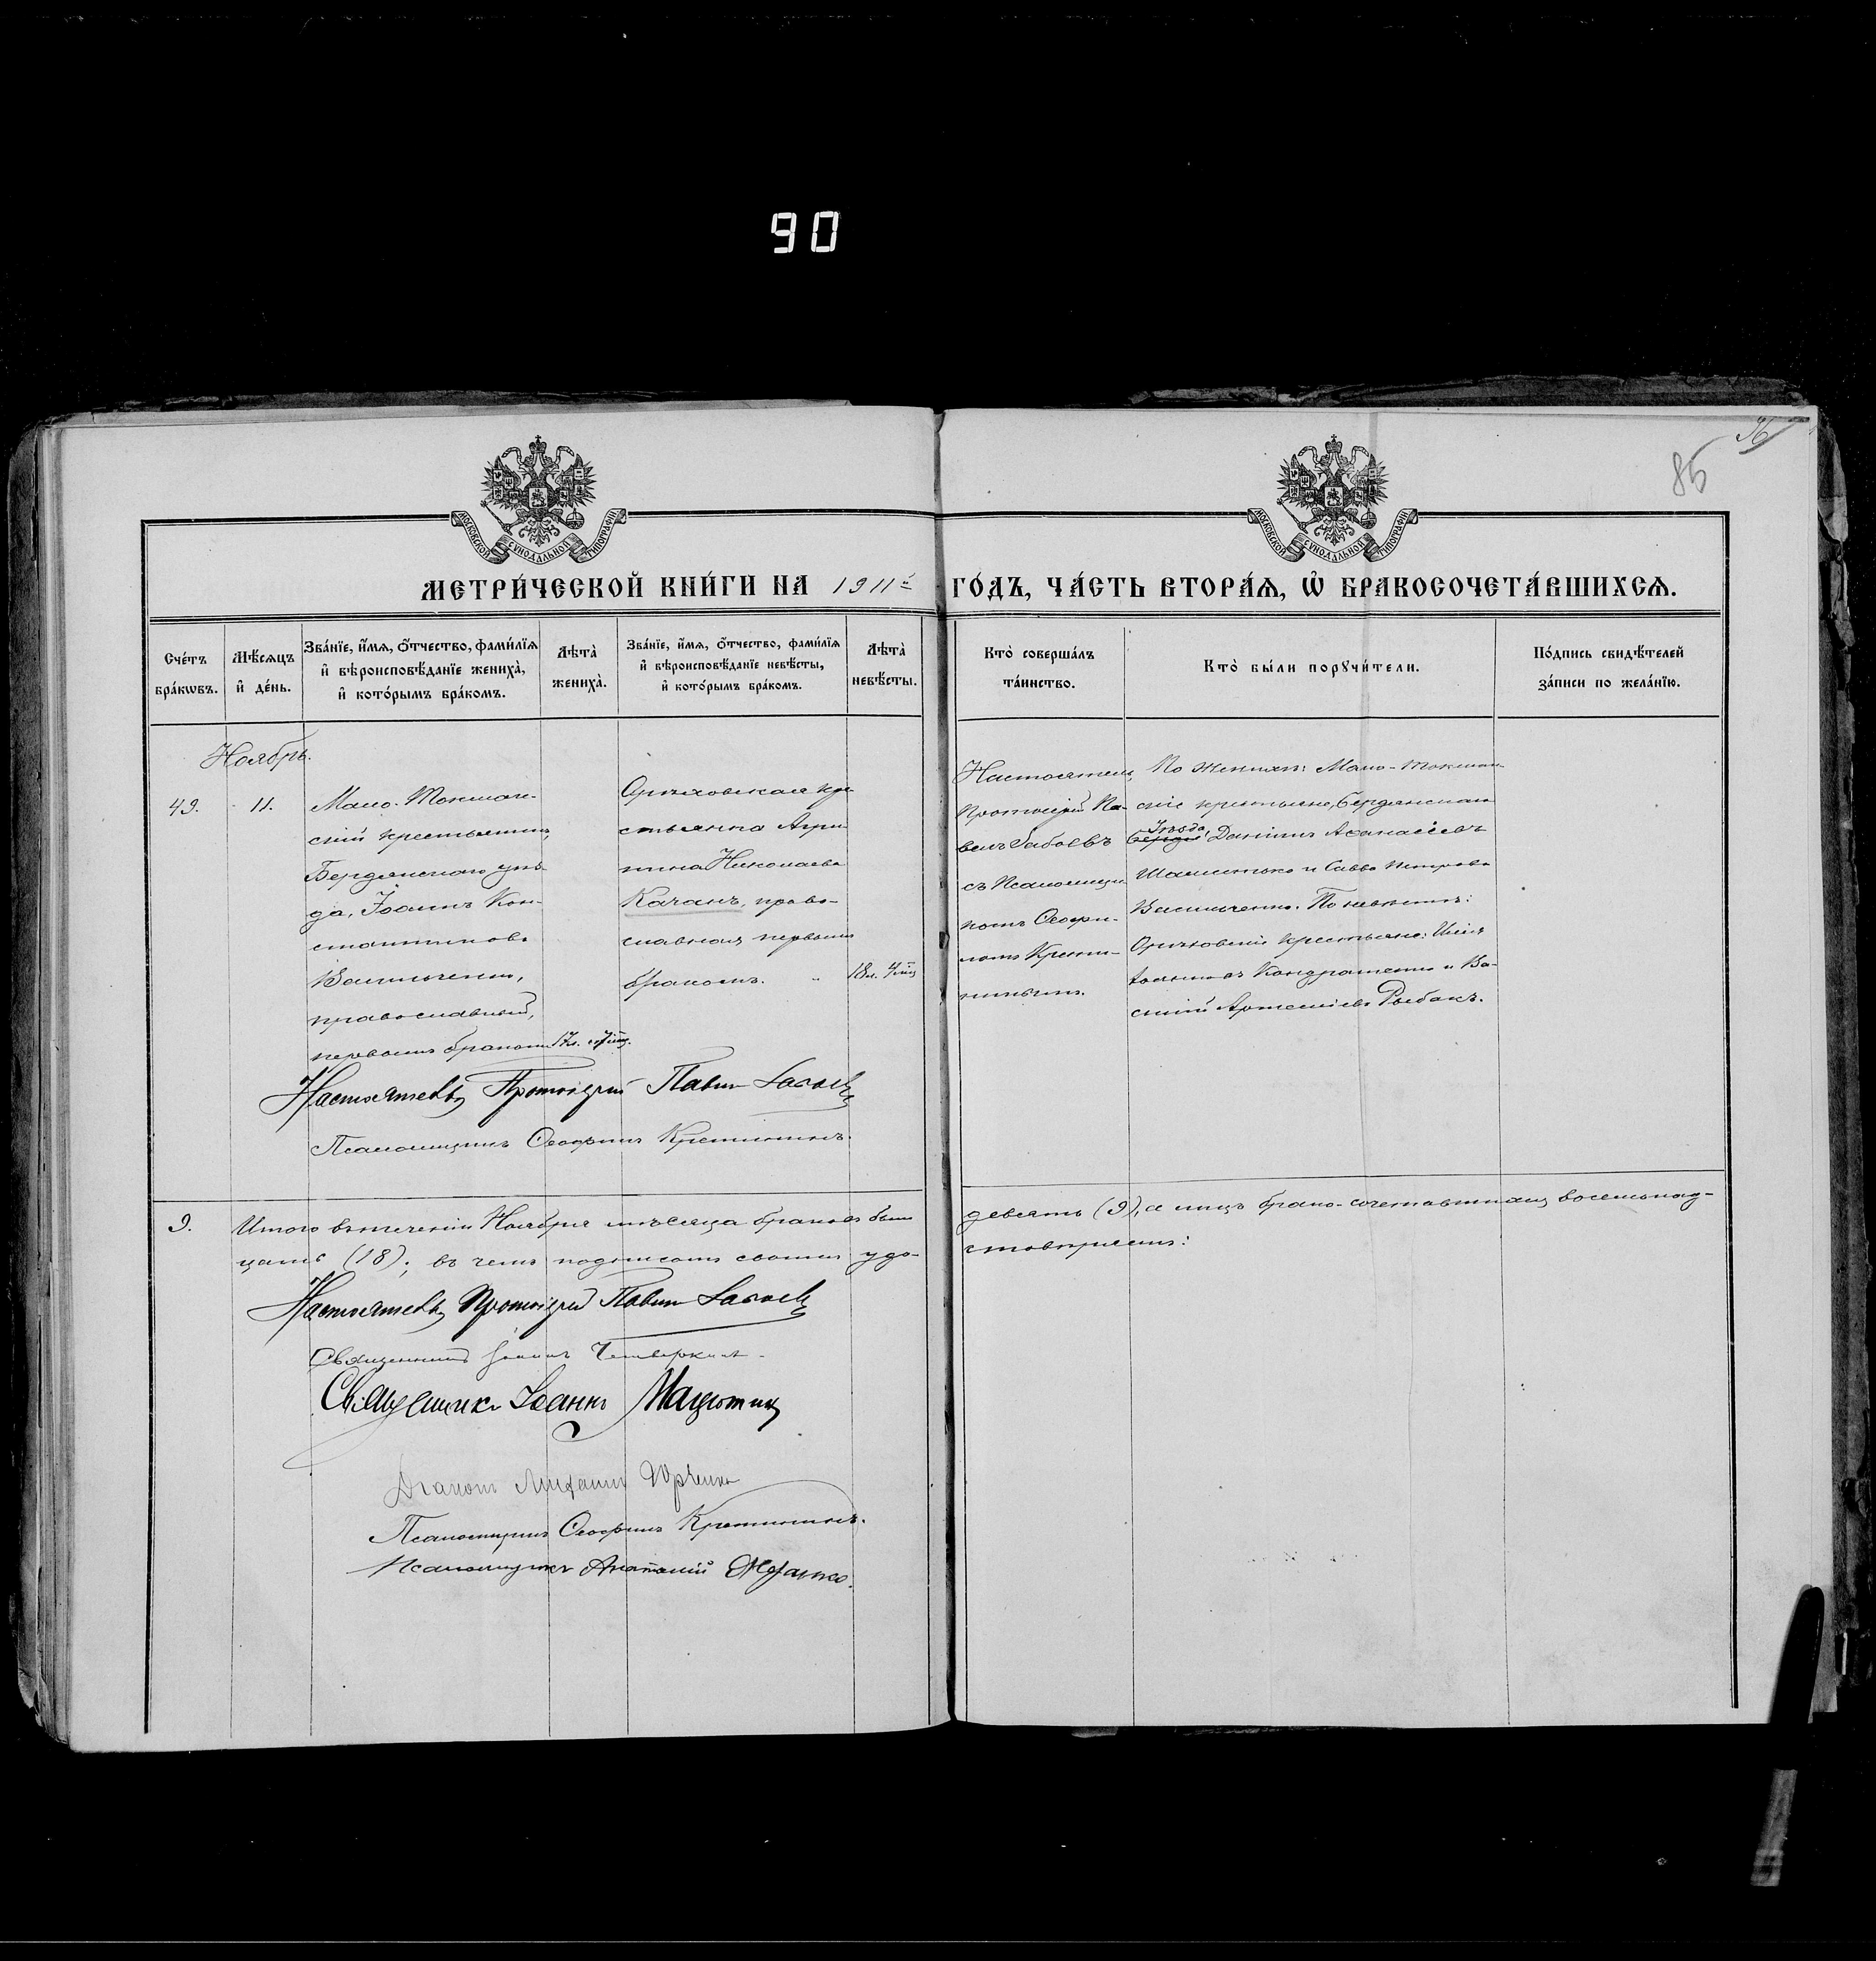 90
96
85
МОСКОВСКОЙ СУНОДАЛЬНОЙ ТИПОГРАФІИ
МОСКОВСКОЙ СУНОДАЛЬНОЙ ТИПОГРАФІИ
МЕТРИ́ЧЕСКОЙ КНИ́ГИ НА 1911й ГО́ДЪ, ЧА́СТЬ ВТОРА́Ѧ, Ѡ҆ БРАКОСОЧЕТА́ВШИХСѦ.
Сче́тъ бра́кѡвъ.
Мѣ́сѧцъ и҆ де́нь.
Зва́нїе, и҆́мѧ, ѻ҆́тчество, фами́лїѧ и҆ вѣроисповѣ́данїе жениха̀, и҆ кото́рымъ бра́комъ.
Лѣта̀ жениха̀.
Зва́нїе, и҆́мѧ, ѻ҆́тчество, фами́лїѧ и҆ вѣроисповѣ́данїе невѣ́сты, и҆ кото́рымъ бра́комъ.
Лѣта̀ невѣ́сты.
Кто̀ соверша́лъ та́инство.
Кто̀ бы́ли порꙋчи́тели.
По́дпись свидѣ́телей за́писи по жела́нїю.
Ноябрь.
49.
11.
Мало-Токмач-
скій крестьянинъ,
Бердянскаго уѣз-
да, Іоаннъ Кон-
стантиновъ
Васильченко,
православный,
первымъ бракомъ
17л.
Орѣховская кре-
стьянка Агри-
пина Николаева
Качанъ, право-
славная первымъ
бракомъ.
18л. 4 мц
Настоятель
Протоіерей Па-
велъ Забоевъ
съ Псаломщи-
комъ Ѳеофи-
ломъ Крети-
нинымъ.
По женихѣ: Мало-Токмач-
скіе крестьяне, Бердянскаго
Уѣзда,
Даніилъ Аѳанасіевъ
и Савва Петровъ
Васильченко. По невѣстѣ:
Орѣховскіе крестьяне:
Іоанновъ Кондратенко и Ва-
силій Артеміевъ Рыбакъ.
Настоятель Протоіерей Павелъ Забоевъ
Псаломщикъ Ѳеофилъ Кретининъ.
9.
Итого въ теченіи Ноября мѣсяца браковъ было девять (9), а лицъ брако-сочетавшихся восемьнад-
цать (18); въ чемъ подписомъ своимъ удо-стовѣряемъ:
Настоятель Протоіерей Павелъ Забоевъ
Священникъ Іоаннъ
Священникъ Іоаннъ
Діаконъ Михаилъ Юрченко
Псаломщикъ Ѳеофилъ Кретининъ.
Псаломщикъ Анатолій